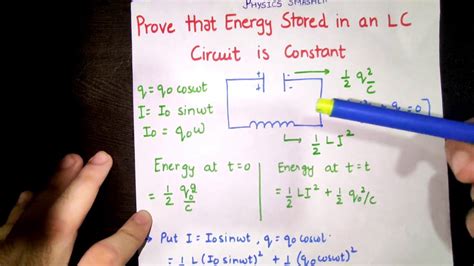 PHYSICS SMASHER
Prove that Energy Stored in an LC
Circuit is Constant
q = q₀ cosωt
I = I₀ sinωt
I₀ = q₀ω
+ -
+ -
1/2 q²/C
= 0
1/2 L I²
Energy at t=0
= 1/2 q₀²/C
Energy at t=t
= 1/2 LI² + 1/2 q₀²/C
→ Put I = I₀ sinωt, q = q₀ cosωt
= 1/2 L (I₀ sinωt)² + 1/2 (q₀ cosωt)²